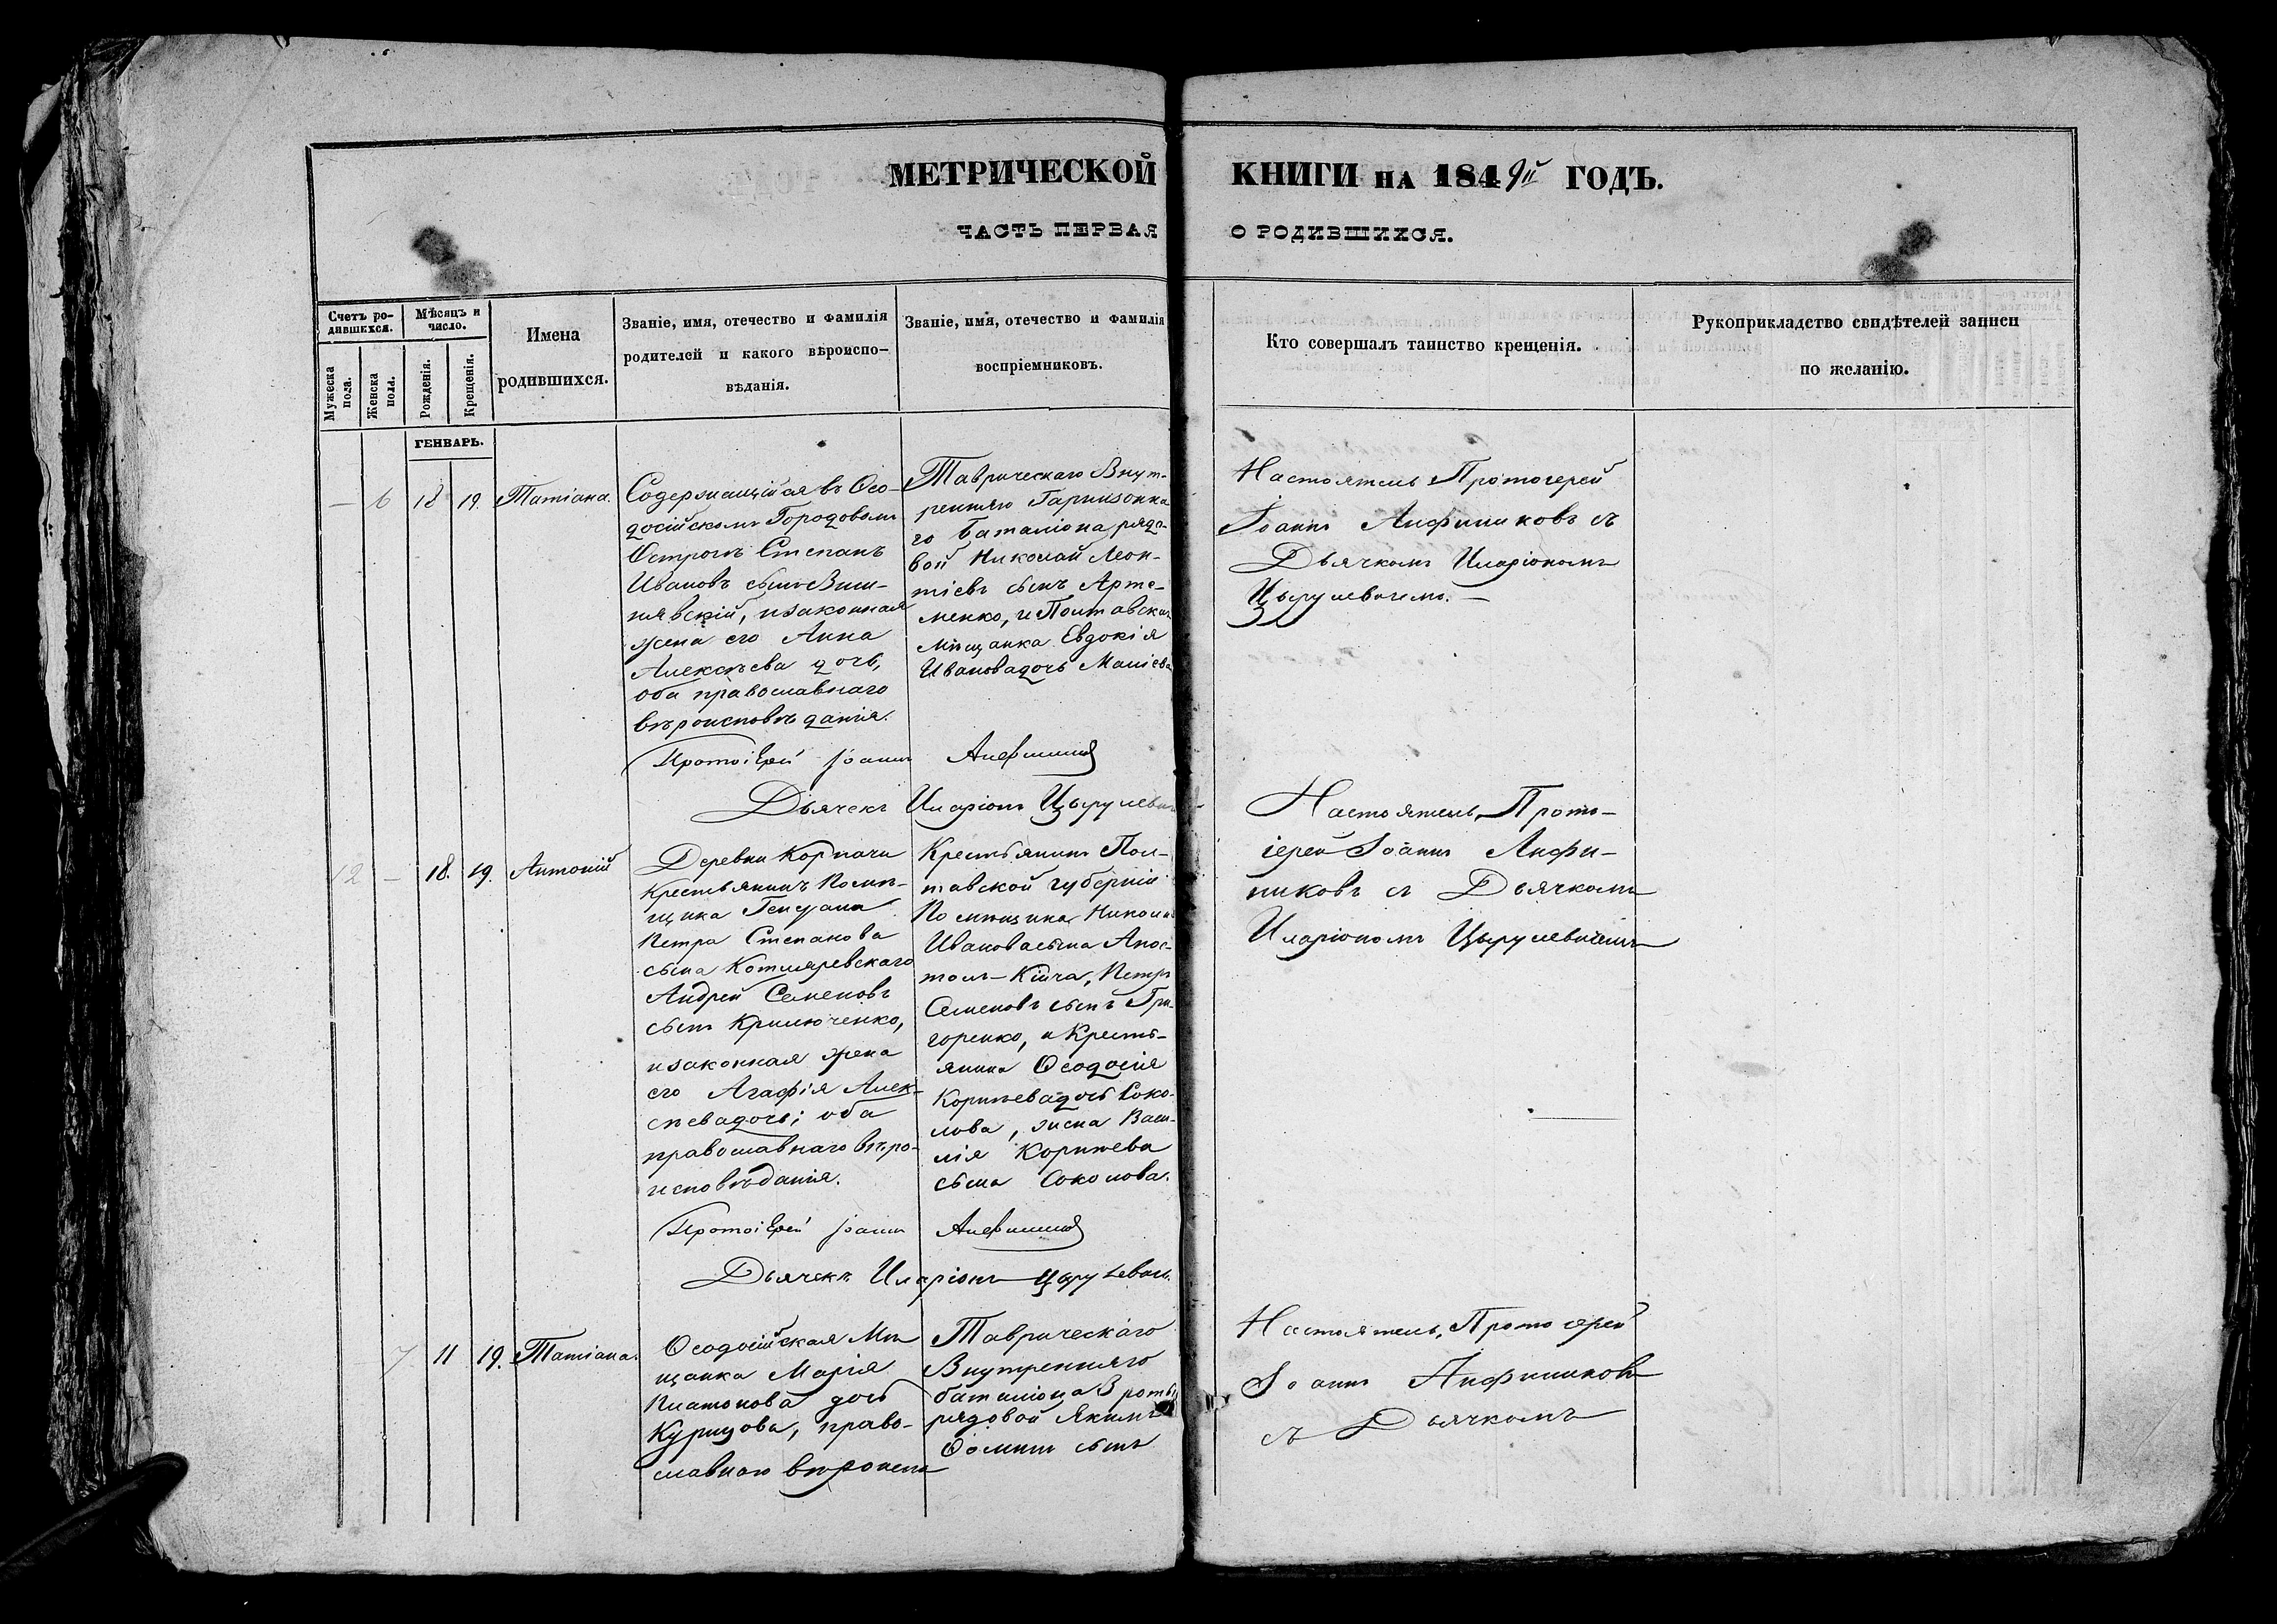 МЕТРИЧЕСКОЙ КНИГИ НА 1849й ГОДЪ.
ЧАСТЬ ПЕРВАЯ О РОДИВШИХСЯ.
Счетъ ро-
дившихся.
Мужеска пола.
Женска пола.
Мѣсяцъ и
число.
Рожденія.
Крещенія.
Имена
родившихся.
Званіе, имя, отечество и фамилія
родителей и какого вѣроиспо-
вѣданія.
Званіе, имя, отечество и фамилія
воспріемниковъ.
Кто совершалъ таинство крещенія.
Рукоприкладство свидѣтелей записи
по желанію.
ГЕНВАРЬ.
— 6 18 19. Татіана.
Содержащійся въ Ѳео-
досійскомъ Городовомъ
Острогѣ Степанъ
Ивановъ сынъ Виш-
нявскій, и законная
жена его Анна
Алексѣева дочь,
оба православнаго
вѣроисповѣданія.
Таврическаго Внут-
ренняго Гарнизонна
го баталіона рядо-
вой Николай Леон-
тіевъ сынъ Арте-
менко, и Полтавская
мѣщанка Евдокія
Иванова дочь
Настоятель Протоіерей
Іоаннъ Анфиниковъ съ
Дьячкомъ Иларіономъ
Цырулевичемъ. —
Протоіерей Іоаннъ Анфиниковъ
Дьячекъ Иларіонъ Цырулевичъ
12 — 18. 19. Антоній
Деревни
Крестьянинъ Помѣ-
щика
Петра Степанова
сына Котляревскаго
Андрей Семеновъ
сынъ Крилюченко,
и законная жена
его Агафія Алек-
сѣева дочь; оба
православнаго вѣро-
исповѣданія.
Крестьянинъ Пол-
тавской губерніи
Помѣщика Николая
Иванова сына Апос-
толъ-Кигча, Петръ
Семеновъ сынъ Гри-
горенко, и Кресть-
янка Ѳеодосія
Корнѣева дочь Соко-
лова, жена Васи-
лія Корнѣева
сына Соколова.
Настоятель, Прото-
іерей Іоаннъ Анфи-
никовъ съ Дьячкомъ
Иларіономъ Цырулевичемъ
Протоіерей Іоаннъ Анфиниковъ
Дьячекъ Иларіонъ Цырулевичъ.
7 11 19. Татіана.
Ѳеодосійская Мѣ
щанка Марія
Платонова дочь
Курицова, право-
славнаго вѣроиспо
Таврическаго
Внутренняго
баталіона 3 роты
рядовой Якимъ
Ѳоминъ сынъ
Настоятель, Протоіерей
Іоаннъ Анфиниковъ
съ Дьячкомъ